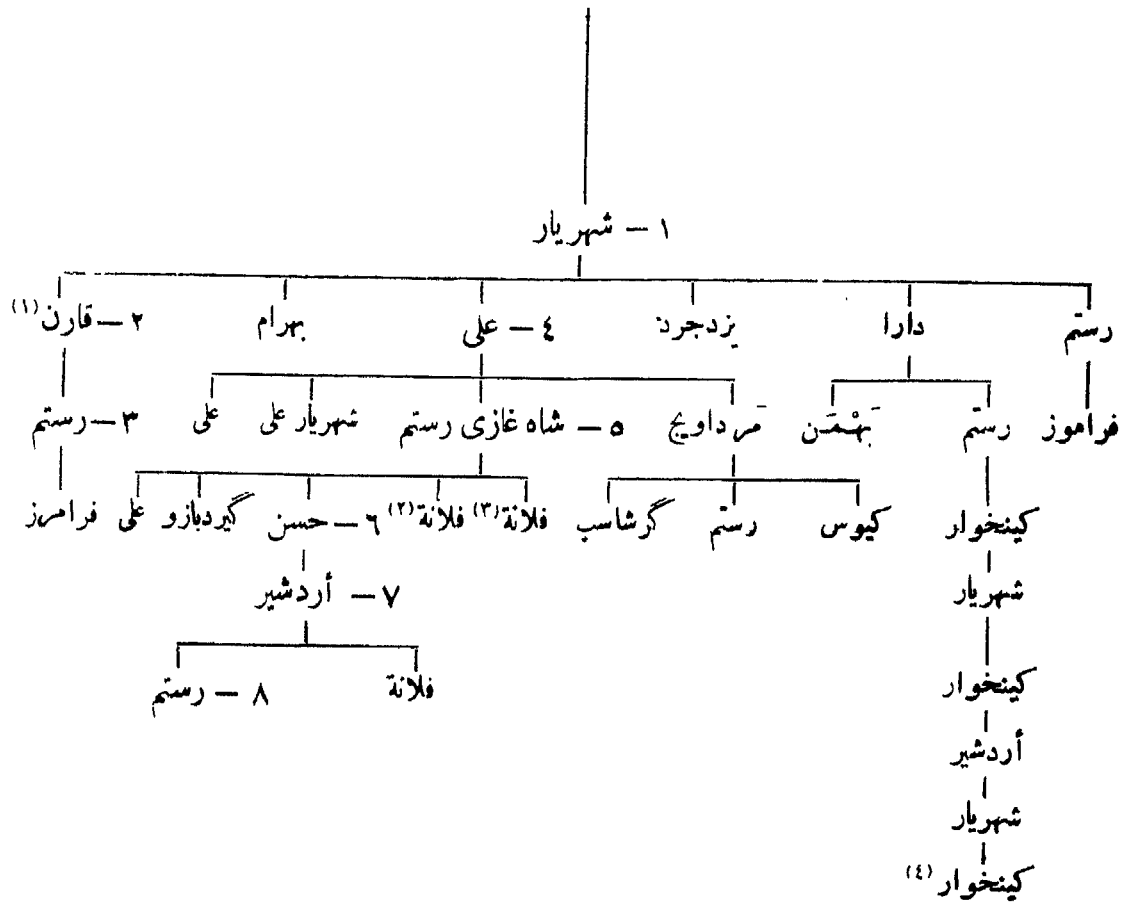 ١ – شهريار
رستم دارا يزدجرد ٤ – على بهرام ٢ – قارن (١)
فراهوز رستم بَهْمَن مَرداويج ٥ – شاه غازى رستم شهريار على على ٣ – رستم
كينخوار كيوس رستم گرشاسب فلانة (٣) فلانة (٢) ٦ – حسن گيردبازو على فرامرز
شهريار ٧ – أردشير
كينخوار فلانة ٨ – رستم
أردشير
شهريار
كينخوار (٤)